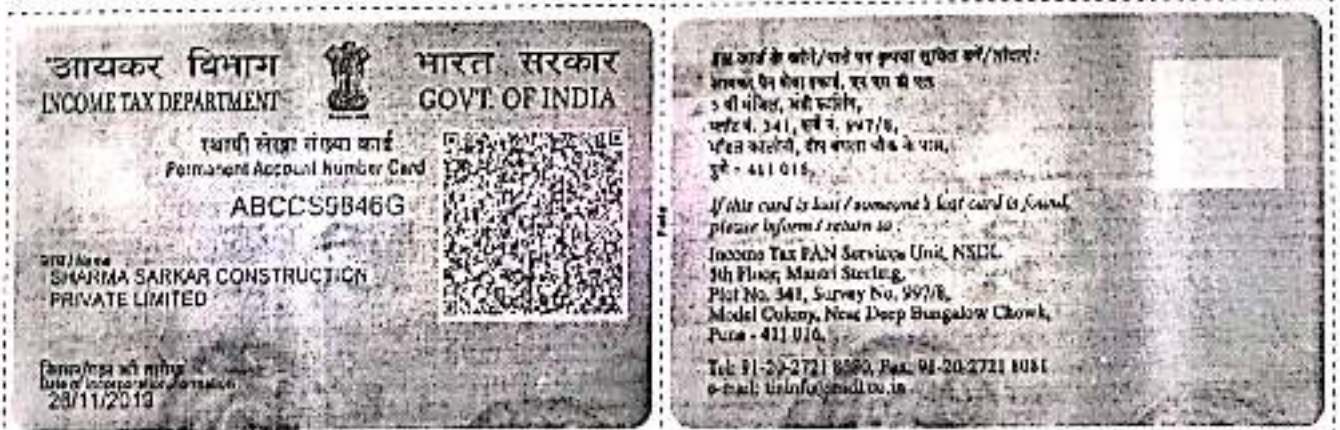 आयकर विभाग
INCOME TAX DEPARTMENT
भारत सरकार
GOVT. OF INDIA
स्थायी लेखा संख्या कार्ड
Permanent Account Number Card
नाम / Name
SHARMA SARKAR CONSTRUCTION
PRIVATE LIMITED
Date of Incorporation/Formation
इस कार्ड के खोने/पाने पर कृपया सूचित करें/लौटाएं:
आयकर पैन सेवा इकाई, एन एस डी एल
5 वी मंजिल, मंत्री स्टर्लिंग,
प्लॉट नं. 341, सर्वे नं. 997/8,
मॉडल कालोनी, दीप बंगला चौक के पास,
पुणे - 411 016.
If this card is lost / someone's lost card is found,
please inform / return to :
Income Tax PAN Services Unit, NSDL
5th Floor, Mantri Sterling,
Plot No. 341, Survey No. 997/8,
Model Colony, Near Deep Bungalow Chowk,
Pune - 411 016.
Tel: 91-20-2721 8080, Fax: 91-20-2721 8081
e-mail: tininfo@nsdl.co.in